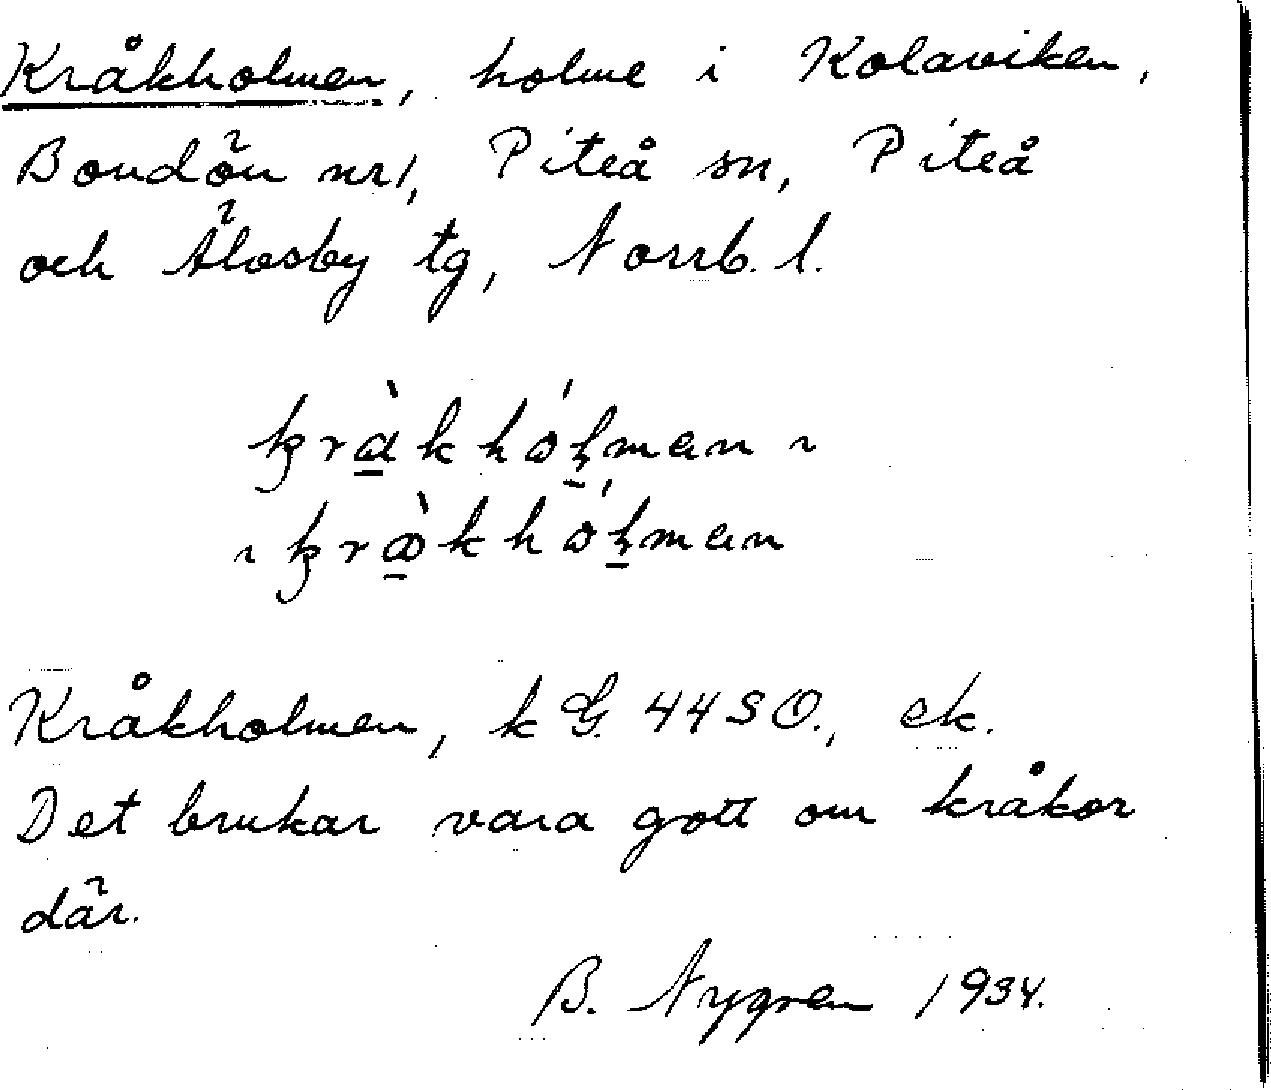 Kråkholmen, holme i Kolaviken,
Bondön nr 1, Piteå sn, Piteå
och Älvsby tg, Norrb. l.
kràkhóļmen ~
~ krœ̀khóļmen
Kråkholmen, kG. 44 SO., ek.
Det brukar vara gott om kråkor
där.
B. Nygren 1934.